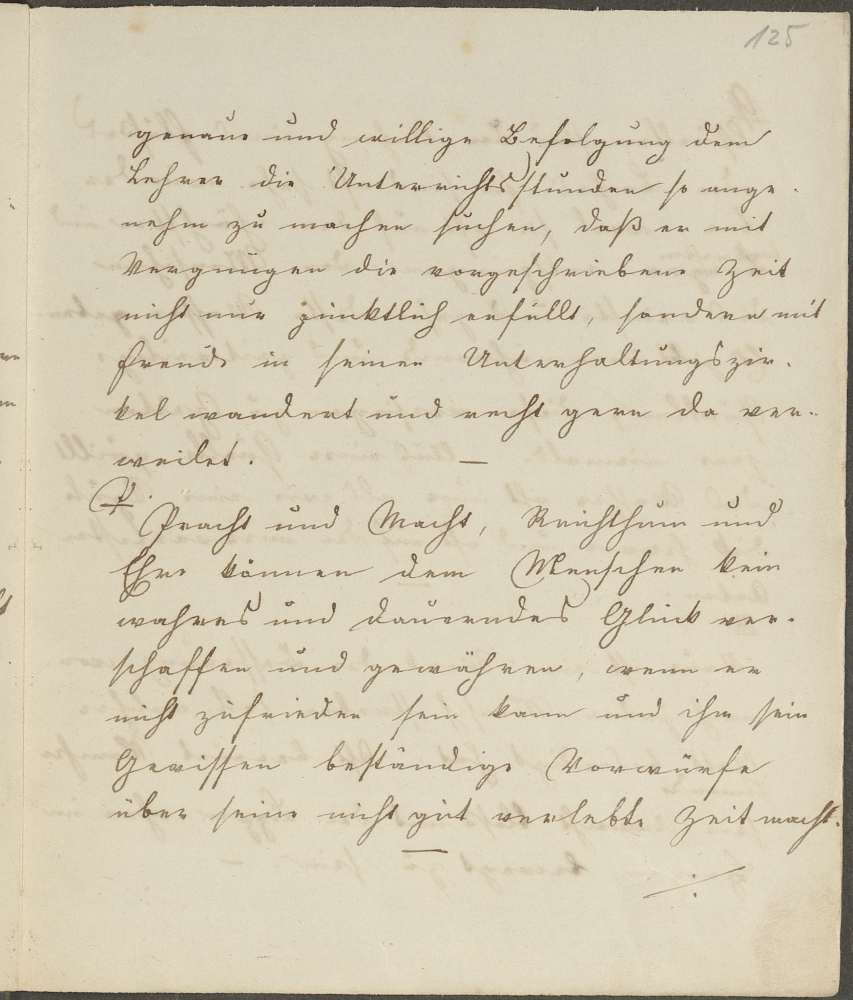 125
genaue und willige Befolgung dem
Lehrer die Unterrichtsstunden so ange-
nehm zu machen suchen, daß er mit
Vergnügen die vorgeschriebene Zeit
nicht nur pünktlich erfüllt, sondern mit
Freude in seinen Unterhaltungszir-
kel wandert und recht gern da ver-
weilet. —
P.
Pracht und Macht, Reichthum und
Ehre können dem Menschen kein
wahres und dauerndes Glück ver-
schaffen und gewähren, wenn er
nicht zufrieden sein kann und ihm sein
Gewissen beständige Vorwürfe
über seine nicht gut verlebte Zeit macht.